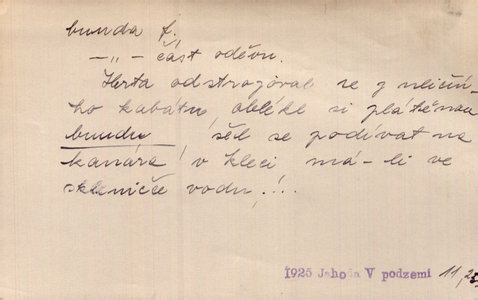 bunda f.
– „ – část oděvu.
Herta odstrojoval se z
ho kabátu, oblékl si plátěnou
bundu šel se podívat na
kanára v kleci má-li ve
skleničce vodu!..
1925 Jahoda V podzemí 11,